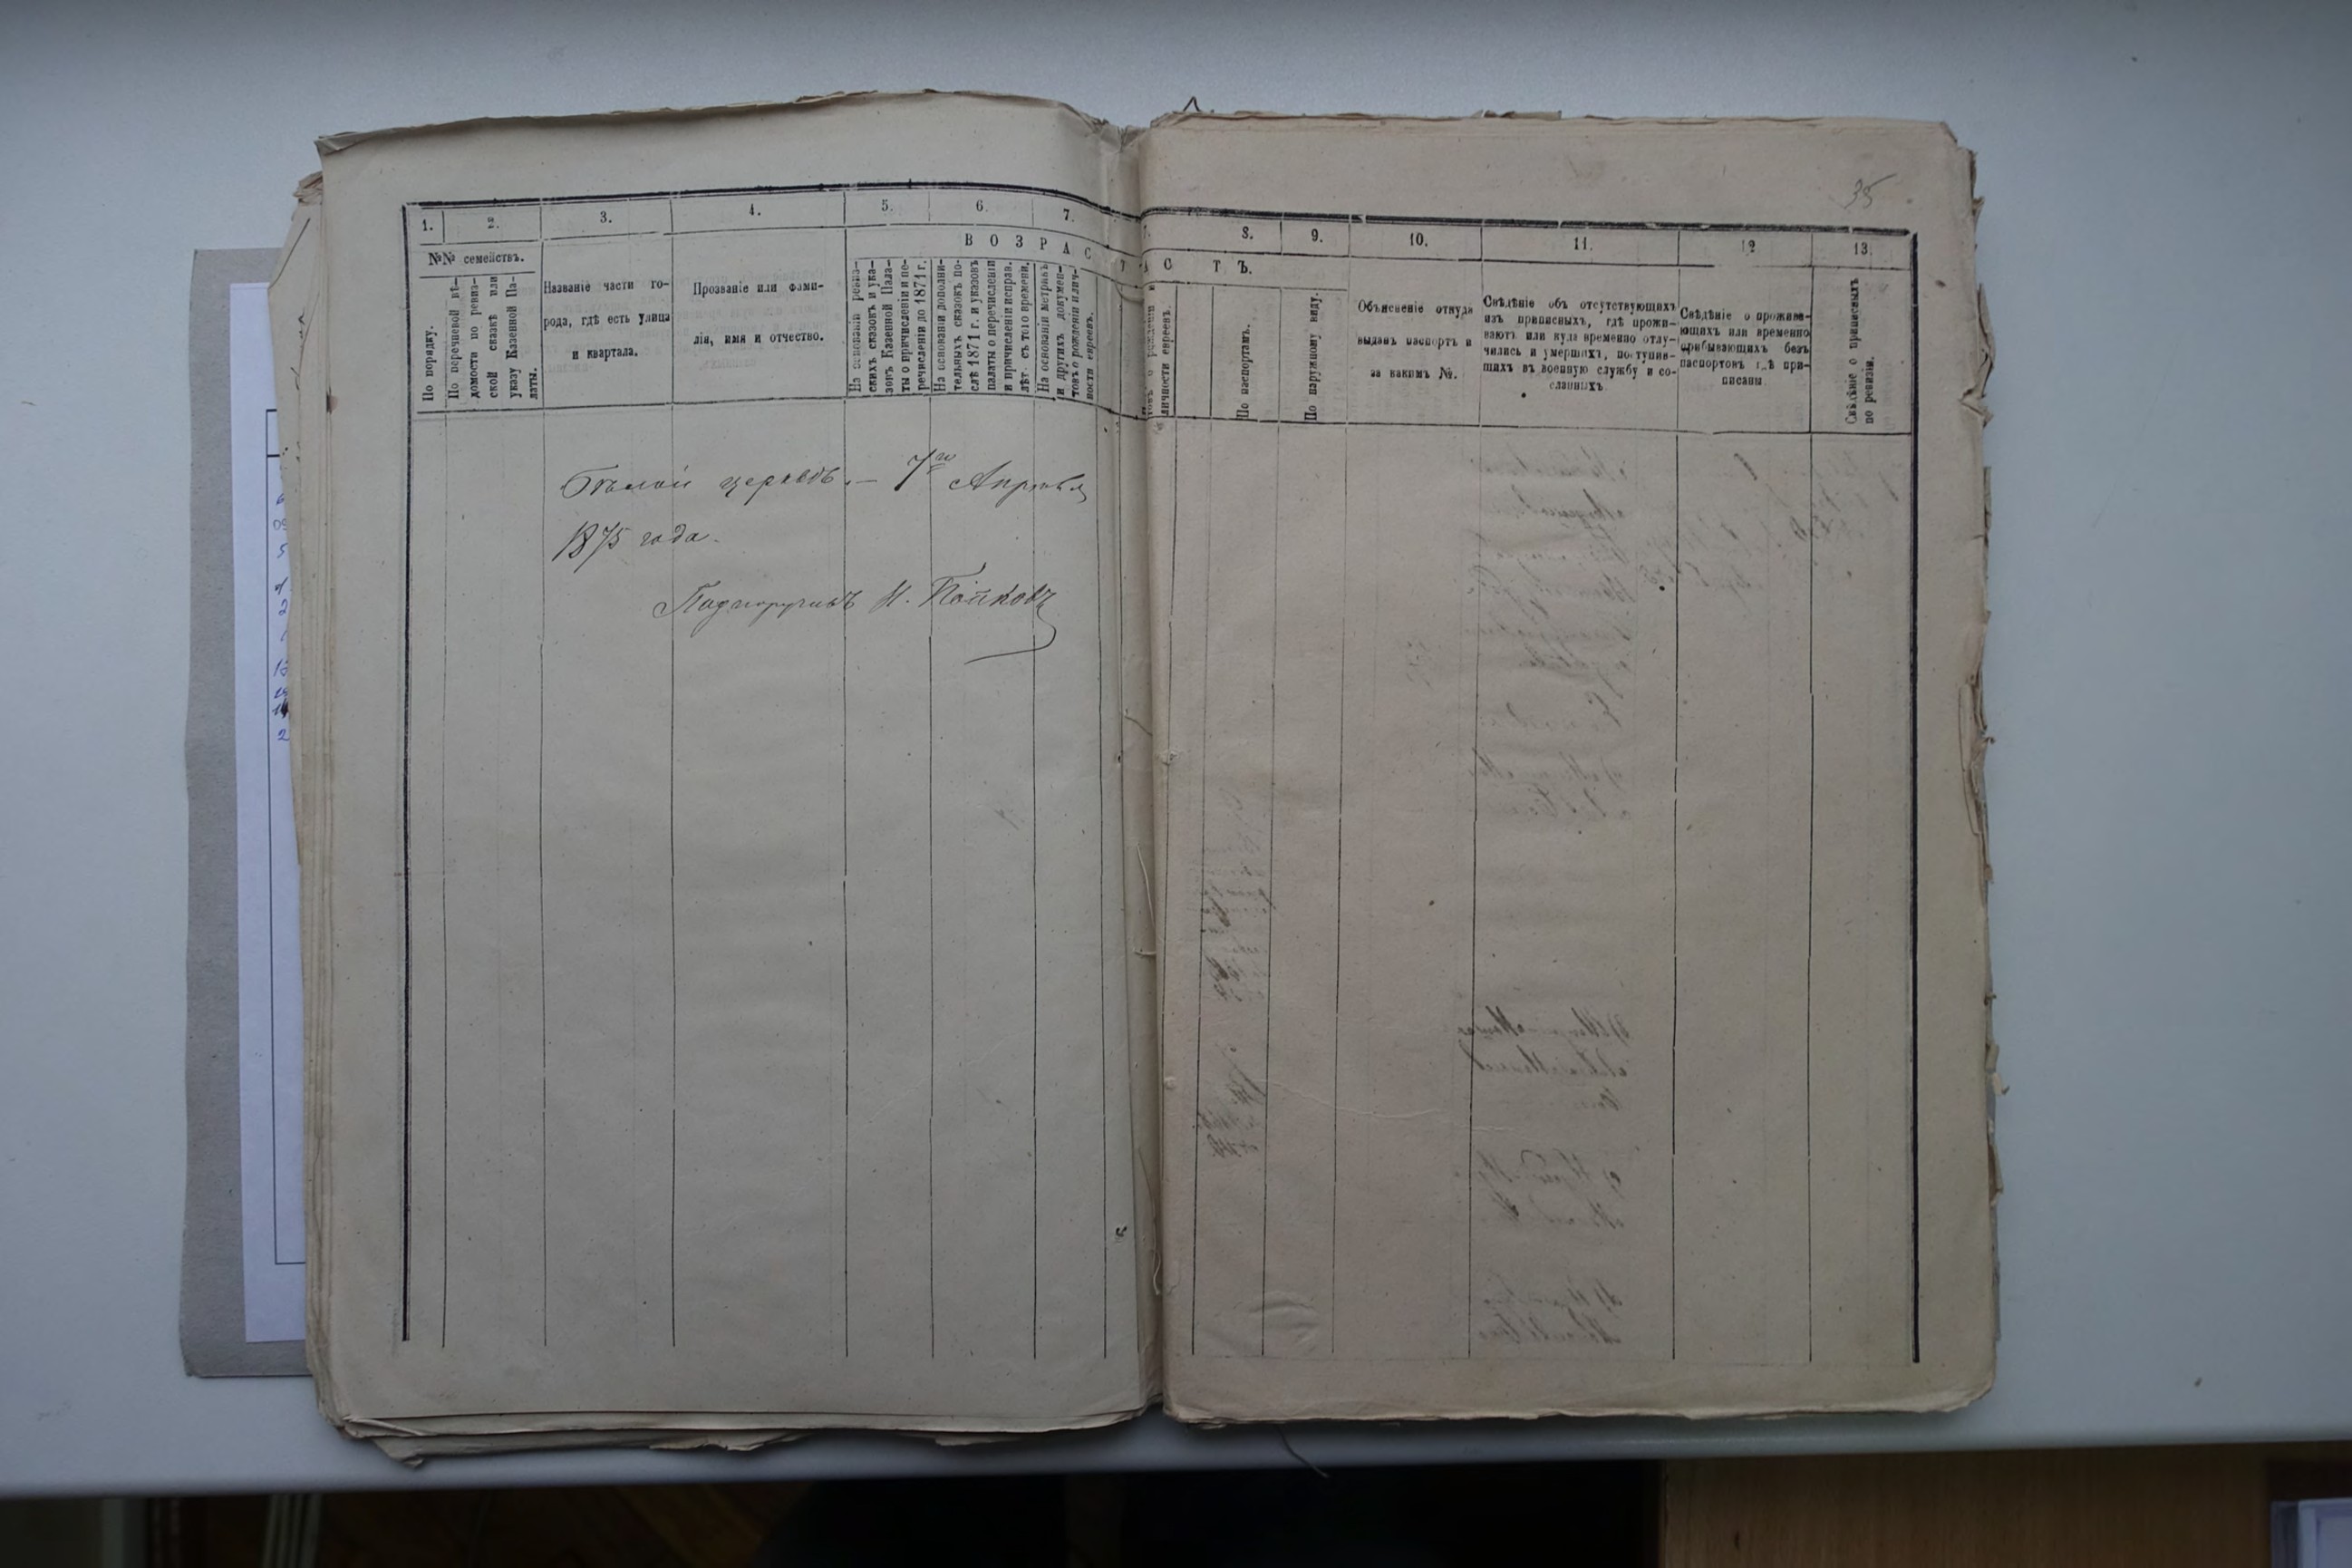 35
1. 2. 3. 4. 5. 6. 7.
В О З Р А С Т
№№ семействъ.
По порядку.
По перечневой вѣ-
домости по ревиз-
ской сказкѣ или
указу Казенной Па-
латы.
Названіе части го-
рода, гдѣ есть улица
и квартала.
Прозваніе или фами-
лія, имя и отчество.
На основаніи ревиз-
скихъ сказокъ и ука-
зовъ Казенной Пала-
ты о причисленіи и пе-
речисленіи до 1871 г.
На основаніи дополни-
тельныхъ сказокъ по-
слѣ 1871 г. и указовъ
палаты о перечисленіи
и причисленіи исправ.
лѣт. съ того времени.
На основаніи метрикъ
и другихъ докумен-
товъ о рожденіи и лич-
ности евреевъ.
Бѣлой церковь. — 7го Апрѣля
1875 года.
Подпоручикъ Н. Попковъ
7. 8. 9. 10. 11. 12 13.
А С Т Ъ.
товъ о рожденіи и
личности евреевъ.
По паспортамъ.
По наружному виду.
Объясненіе откуда
выданъ паспортъ и
за какимъ №.
Свѣдѣніе объ отсутствующихъ
изъ приписныхъ, гдѣ прожи-
ваютъ или куда временно отлу-
чились и умершихъ, поступив-
шихъ въ военную службу и со-
сланныхъ.
Свѣдѣніе о прожива-
ющихъ или временно
прибывающихъ безъ
паспортовъ гдѣ при-
писаны.
Свѣдѣніе о приписныхъ
по ревизіи.